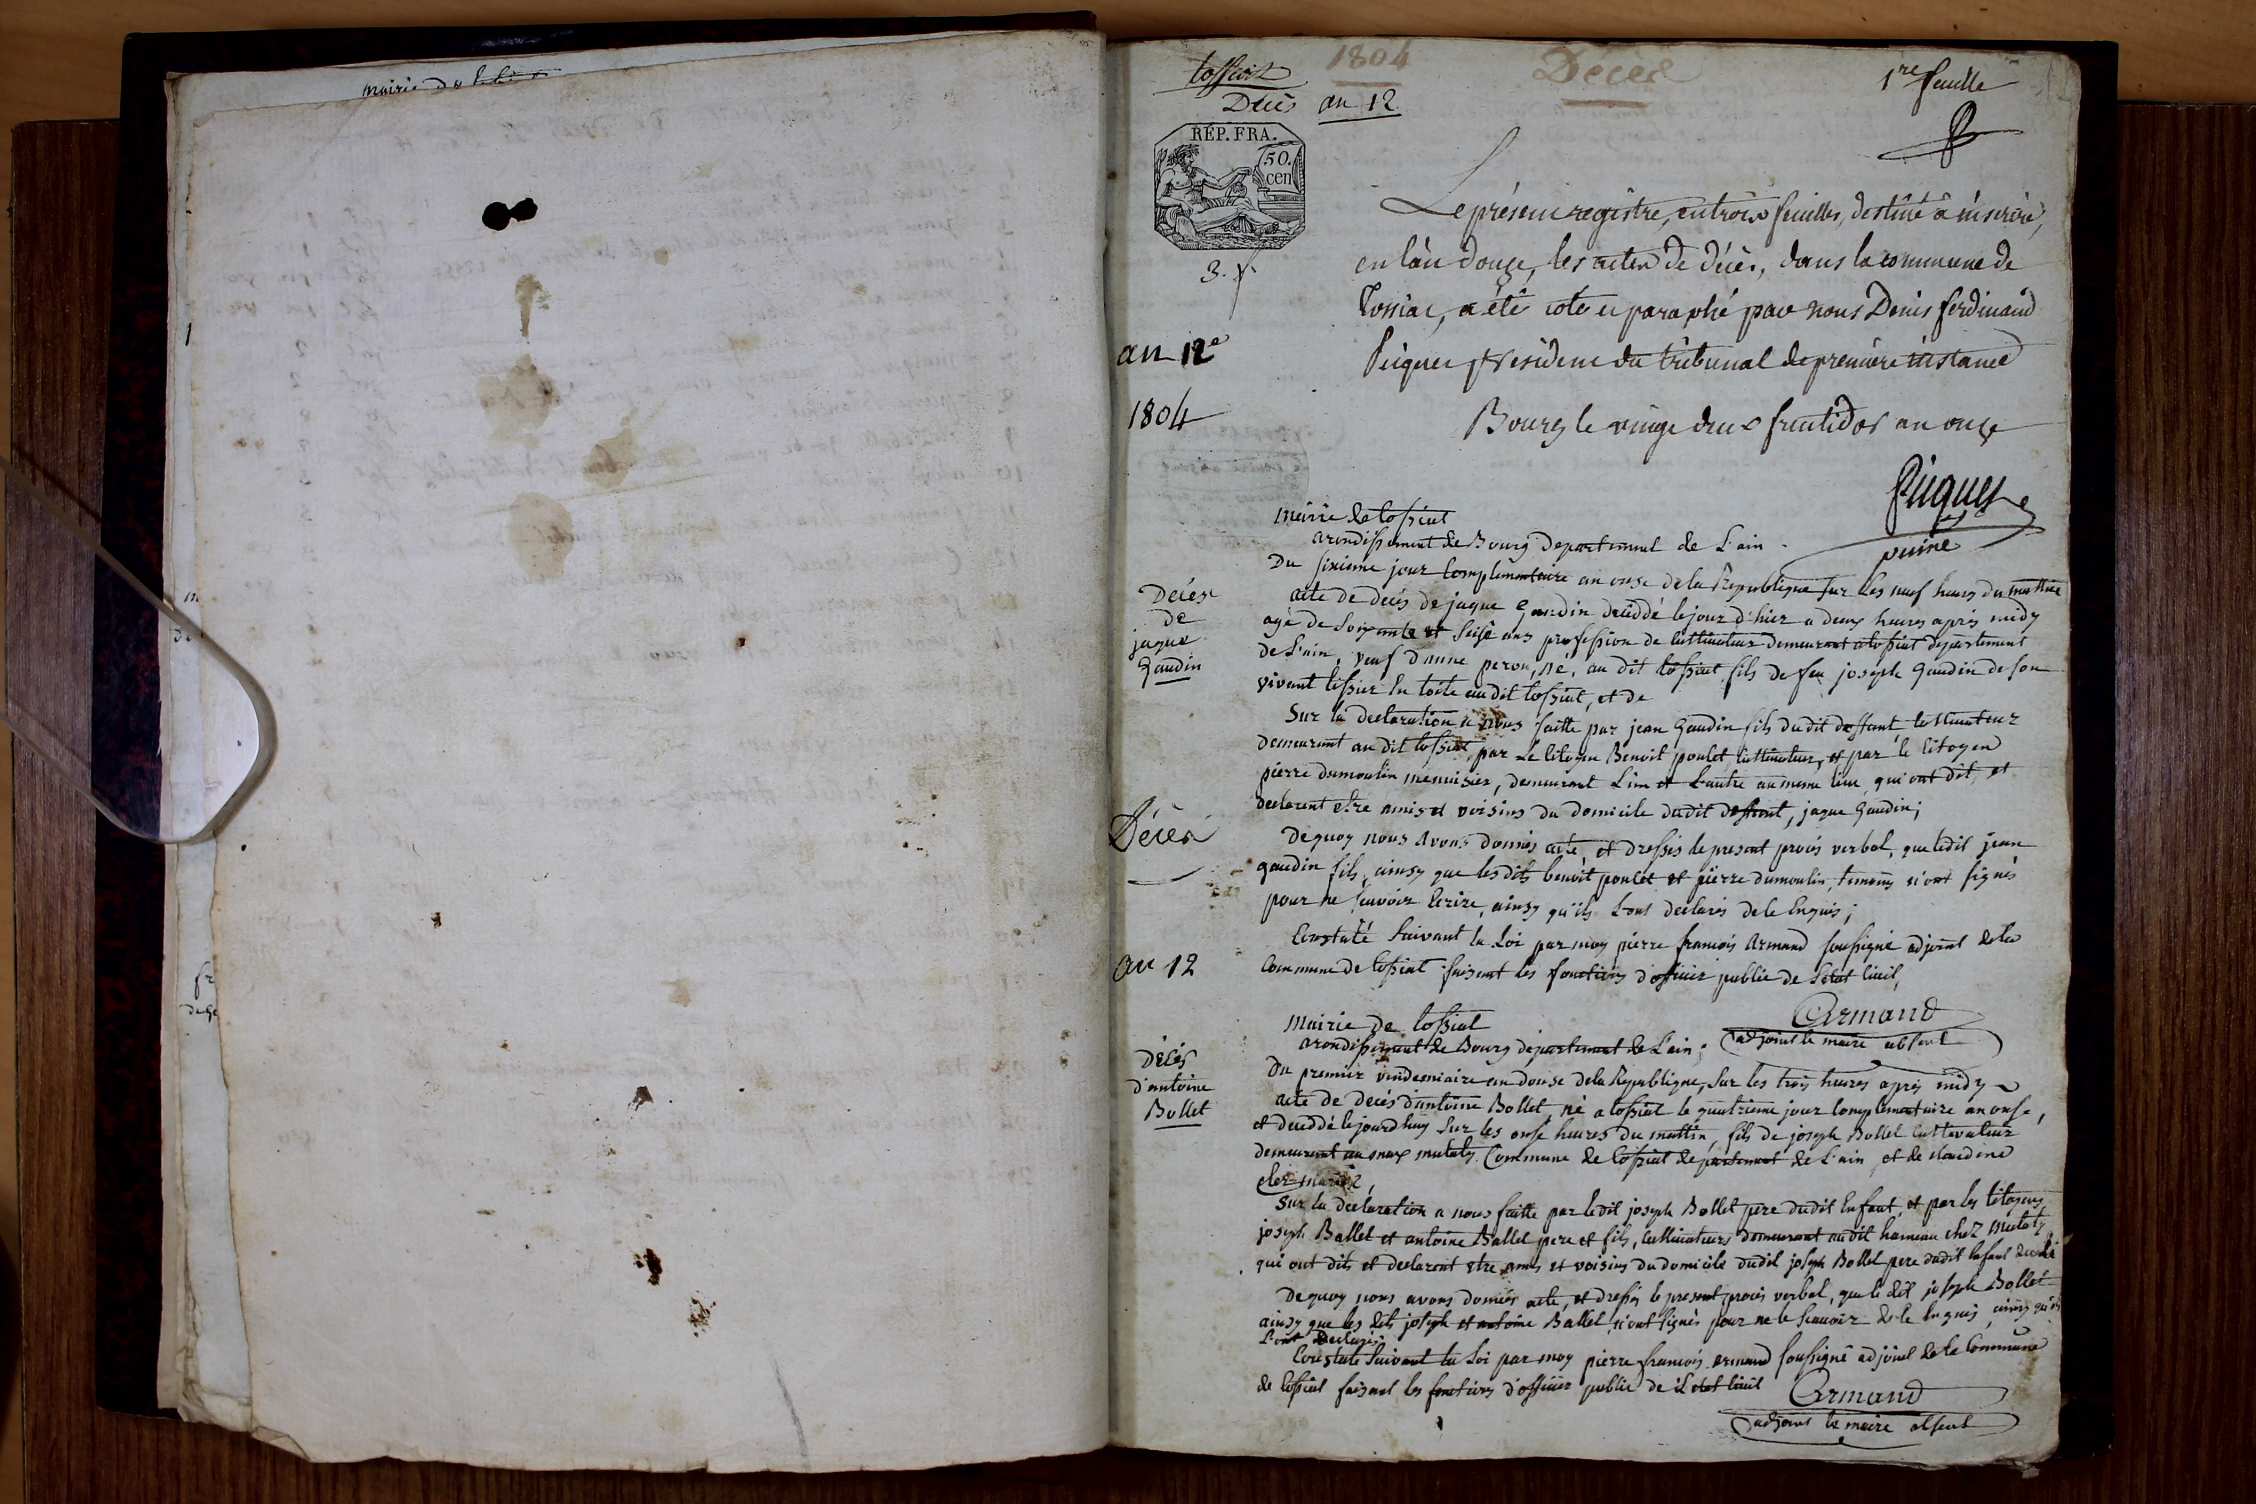 mairie de
1804
Décès
1re feuille
tossiat
Décès an 12
RÉP. FRA.
50.
cen
3. f.
Le présent registre, en trois feuilles, destiné à inscrire,
en l'an douze, les actes de décès, dans la commune de
Tossiat, a été coté et paraphé par nous Denis ferdinand
Picquet président du tribunal de première instance
Bourg le vingt deux fructidor an onze
Picquet
an 12e
1804
mairie de tossiat
arondissement de Bourg departement de L'ain
Du sixieme jour Complementaire an onse de la Republique sur les neuf heures du mattin
Décès
de
jaque
Gaudin
acte de decés de jaque Gaudin decéddé le jour d'hier a deux heures aprés midy
agé de soixante et seise ans profession de Cultivateur demeurant a tossiat departement
de L'ain, veuf danne peron, né, au dit tossiat fils de feu joseph Gaudin de son
vivant tissier En toile audit tossiat, et de
Sur la declaration a nous faitte par jean Gaudin fils dudit deffunt Cultivateur
demeurant au dit tossiat, par Le Citoyen Benoit poulet Cultivateur, et par le Citoyen
pierre dumoulin menuisier, demeurant L'un et L'autre au meme lieu, qui ont dit, et
declarent etre amis et voisins du domicile dudit deffunt, jaque Gaudin;
Décès
De quoy nous avons donnés acte, et dressés le present procés verbal, que ledit jean
gaudin fils, ainsy que les dits benoit poulet et pierre dumoulin, temoins n'ont signés
pour ne sçavoir Ecrire, ainsy qu'ils L'ont declarés de Ce Enquis;
an 12
Constaté Suivant la Loi par moy pierre francois Armand soussigné adjoint de la
Commune de tossiat faisant les fonctions d'officier public de L'etat Civil,
Armand
adjoint le maire absent
Mairie de tossiat
arondissement de Bourg departement de L'ain;
Du premier vindemiaire an douse de la Republique, Sur les trois heures aprés midy
Décés
d'antoine
Bollet
acte de decés d'antoine Bollet, né a tossiat le quatrieme jour Complementaire an onse,
et deceddé le jourd'huy Sur les onse heures du mattin, fils de joseph Bollet Cultivateur
demeurant au max mutaty Commune de tossiat departement de L'ain, et de claudine
Sur la declaration a nous faitte par ledit joseph Bollet pere dudit Enfant, et par les Citoyens
joseph Ballet et antoine Ballet pere et fils, Cultivateurs demeurant audit hameau chez Mutaty
qui ont dits et declarent etre amis et voisins du domicile dudit joseph Bollet pere dudit Enfant decedé
De quoy nous avons donnés acte, et dressés le present procés verbal, que le dit joseph Bollet
ainsy que les dits joseph et antoine Ballet, n'ont signés pour ne le sçavoir de Ce Enquis, ainsy qu'ils
L'ont declarés
Constaté Suivant la Loi par moy pierre francois armand soussigné adjoint de la Commune
de tossiat faisant les fonctions d'officier public de L'etat Civil
Armand
adjoint le maire absent